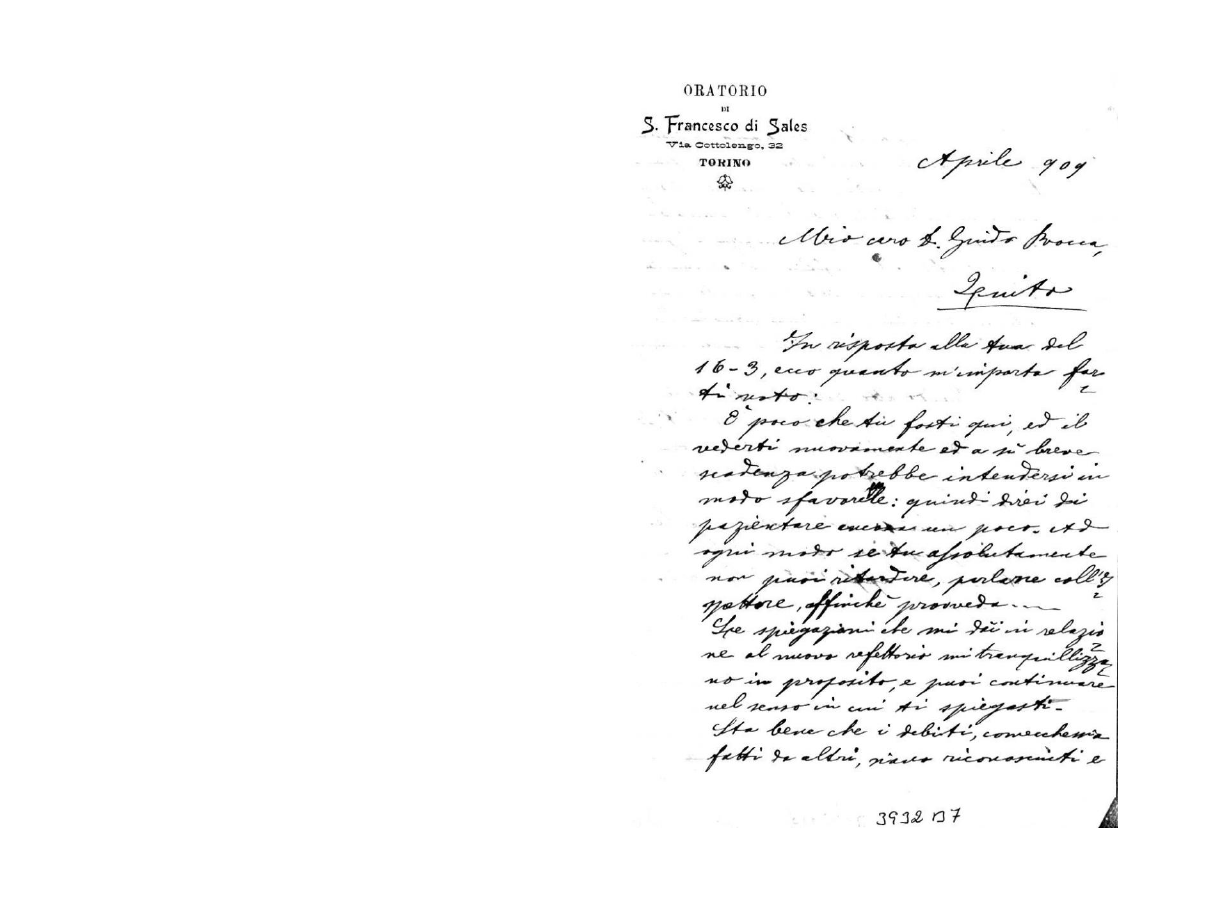 ORATORIO
DI
S. Francesco di Sales
Via Cottolengo, 32
TORINO
Aprile 909
Mio caro D. Guido Rocca,
Quito
In risposta alla tua del
16-3, ecco quanto m'importa far-
ti noto:
È poco che tu fosti qui, ed il
vederti nuovamente ed a sì breve
scadenza potrebbe intendersi in
modo sfavorele: quindi direi di
pazientare ancora un poco. Ad
ogni modo se tu assolutamente
non puoi ritardare, parlane coll'I-
spettore, affinchè provveda....
Le spiegazioni che mi dai in relazio-
ne al nuovo refettorio mi tranquillizza-
no in proposito, e puoi continuare
nel senso in cui ti spiegasti.
Sta bene che i debiti, comecchessia
fatti da altri, siano riconosciuti e
3932 B7